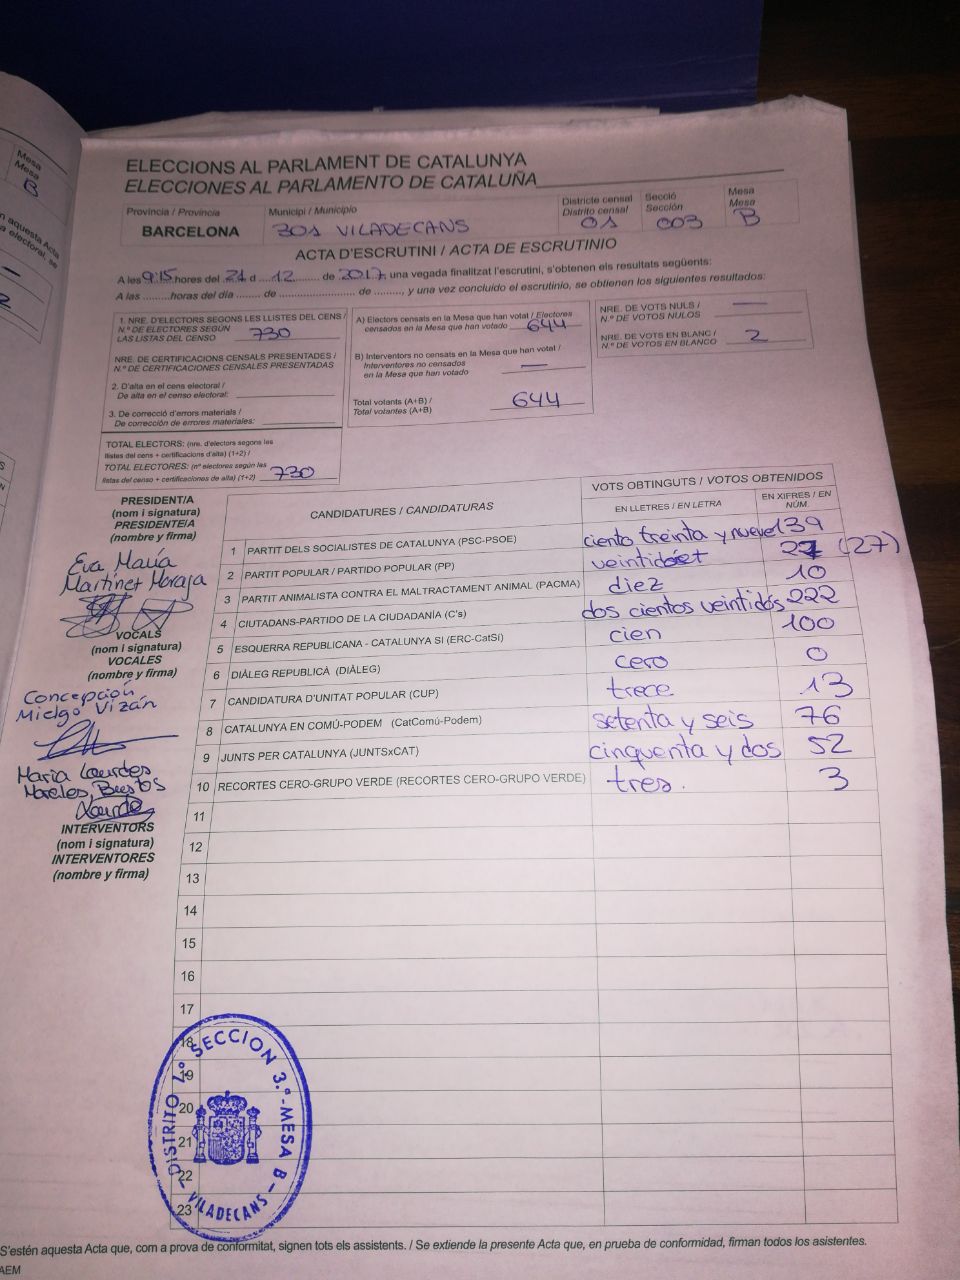 Mesa
Mesa
B
n aquesta Acta
a electoral, se
ELECCIONS AL PARLAMENT DE CATALUNYA
ELECCIONES AL PARLAMENTO DE CATALUÑA
Província / Provincia
BARCELONA
Municipi / Municipio
301 VILADECANS
Districte censal
Distrito censal
01
Secció
Sección
003
Mesa
Mesa
B
ACTA D'ESCRUTINI / ACTA DE ESCRUTINIO
A les 9:15 hores del 21 d ... 12 ... de 2017, una vegada finalitzat l'escrutini, s'obtenen els resultats següents:
A las ......... horas del día ....... de ........................... de ........, y una vez concluido el escrutinio, se obtienen los siguientes resultados:
1. NRE. D'ELECTORS SEGONS LES LLISTES DEL CENS /
N.º DE ELECTORES SEGÚN
LAS LISTAS DEL CENSO 730
NRE. DE CERTIFICACIONS CENSALS PRESENTADES /
N.º DE CERTIFICACIONES CENSALES PRESENTADAS
2. D'alta en el cens electoral /
De alta en el censo electoral:
3. De correcció d'errors materials /
De corrección de errores materiales:
TOTAL ELECTORS: (nre. d'electors segons les
llistes del cens + certificacions d'alta) (1+2) /
TOTAL ELECTORES: (nº electores según las
listas del censo + certificaciones de alta) (1+2) 730
A) Electors censats en la Mesa que han votat / Electores
censados en la Mesa que han votado 644
B) Interventors no censats en la Mesa que han votat /
Interventores no censados
en la Mesa que han votado —
Total votants (A+B) /
Total votantes (A+B) 644
NRE. DE VOTS NULS /
N.º DE VOTOS NULOS —
NRE. DE VOTS EN BLANC /
N.º DE VOTOS EN BLANCO 2
PRESIDENT/A
(nom i signatura)
PRESIDENTE/A
(nombre y firma)
Eva María
Martínez Moraja
VOCALS
(nom i signatura)
VOCALES
(nombre y firma)
Concepción
Mielgo Vizán
María Lourdes
Morales Bustos
Lourdes
INTERVENTORS
(nom i signatura)
INTERVENTORES
(nombre y firma)
CANDIDATURES / CANDIDATURAS
VOTS OBTINGUTS / VOTOS OBTENIDOS
EN LLETRES / EN LETRA
EN XIFRES / EN NÚM.
1 PARTIT DELS SOCIALISTES DE CATALUNYA (PSC-PSOE) ciento treinta y nueve 139
2 PARTIT POPULAR / PARTIDO POPULAR (PP) veintisiet 27 (27)
3 PARTIT ANIMALISTA CONTRA EL MALTRACTAMENT ANIMAL (PACMA) diez 10
4 CIUTADANS-PARTIDO DE LA CIUDADANÍA (C's) dos cientos veintidós 222
5 ESQUERRA REPUBLICANA - CATALUNYA SÍ (ERC-CatSí) cien 100
6 DIÀLEG REPUBLICÀ (DIÀLEG) cero 0
7 CANDIDATURA D'UNITAT POPULAR (CUP) trece 13
8 CATALUNYA EN COMÚ-PODEM (CatComú-Podem) setenta y seis 76
9 JUNTS PER CATALUNYA (JUNTSxCAT) cinquenta y dos 52
10 RECORTES CERO-GRUPO VERDE (RECORTES CERO-GRUPO VERDE) tres. 3
11
12
13
14
15
16
17
18
19
20
21
22
23
DISTRITO 1.º SECCION 3.ª - MESA B - VILADECANS -
S'estén aquesta Acta que, com a prova de conformitat, signen tots els assistents. / Se extiende la presente Acta que, en prueba de conformidad, firman todos los asistentes.
AEM